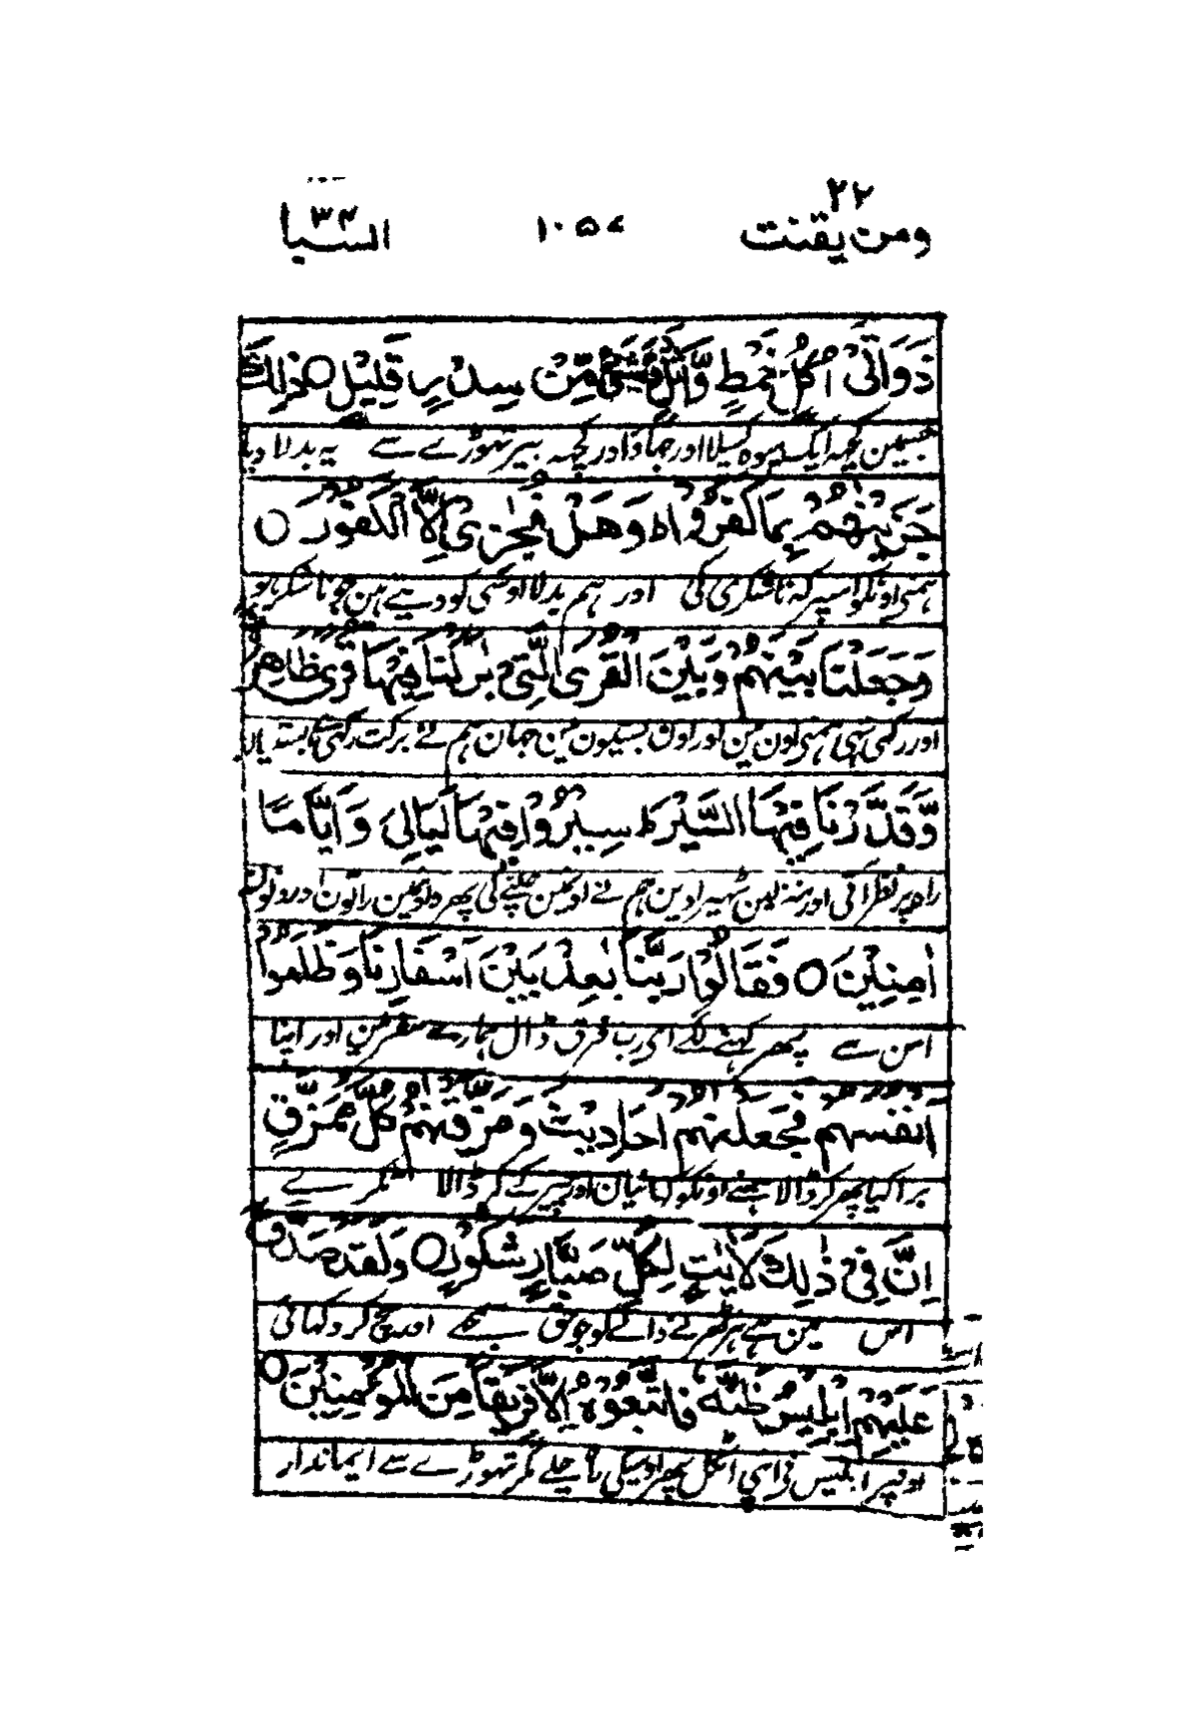 ومن یقنت ۲۲
۱۰۵۷
السبا ۳۴
ذَوَاتَىْ اُكُلٍ خَمْطٍ وَّاَثْلٍ وَّشَىْءٍ مِّنْ سِدْرٍ قَلِيْلٍ ○ ذٰلِكَ
جسمین کچھ ایک میوہ کسیلا اور جھاؤ اور کچھ بیر تھوڑے سے یہ بدلا دیا
جَزَيْنٰهُمْ بِمَا كَفَرُوْا ط وَهَلْ نُجٰزِىْ اِلَّا الْكَفُوْرَ ○
ہمنی اونکو اسپر کہ ناشکری کی اور ہم بدلا اوسی کو دیتے ہین جو ناشکر ہو
وَجَعَلْنَا بَيْنَهُمْ وَبَيْنَ الْقُرَى الَّتِىْ بٰرَكْنَا فِيْهَا قُرًى ظَاهِرَةً
اور رکھی تھی ہمنی اون مین اور اون بستیون مین جہان ہم نے برکت رکھی ہے بستیان
وَّقَدَّرْنَا فِيْهَا السَّيْرَ ط سِيْرُوْا فِيْهَا لَيَالِىَ وَاَيَّامًا
راہ پر نظر آتی اور منزلین ٹھہرادین ہم نے اونمین چلنے کی پھرو اونمین راتون اور دنون
اٰمِنِيْنَ ○ فَقَالُوْا رَبَّنَا بٰعِدْ بَيْنَ اَسْفَارِنَا وَظَلَمُوْا
امن سے پھر کہنے لگے ای رب فرق ڈال ہمارے سفر مین اور اپنا
اَنْفُسَهُمْ فَجَعَلْنٰهُمْ اَحَادِيْثَ وَمَزَّقْنٰهُمْ كُلَّ مُمَزَّقٍ
برا کیا پھر کر ڈالا ہمنے اونکو کہانیان اور چیر کے کر ڈالا ٹکڑے
اِنَّ فِىْ ذٰلِكَ لَاٰيٰتٍ لِّكُلِّ صَبَّارٍ شَكُوْرٍ ○ وَلَقَدْ صَدَّقَ
اس مین پتے ہین ہر ٹھہرنے والے کو جو حق سمجھے اور سچ کر دکھائی
عَلَيْهِمْ اِبْلِيْسُ ظَنَّهٗ فَاتَّبَعُوْهُ اِلَّا فَرِيْقًا مِّنَ الْمُؤْمِنِيْنَ ○
اونپر ابلیس نی اپنی اٹکل پھر اوسیکی راہ چلے مگر تھوڑے سے ایماندار